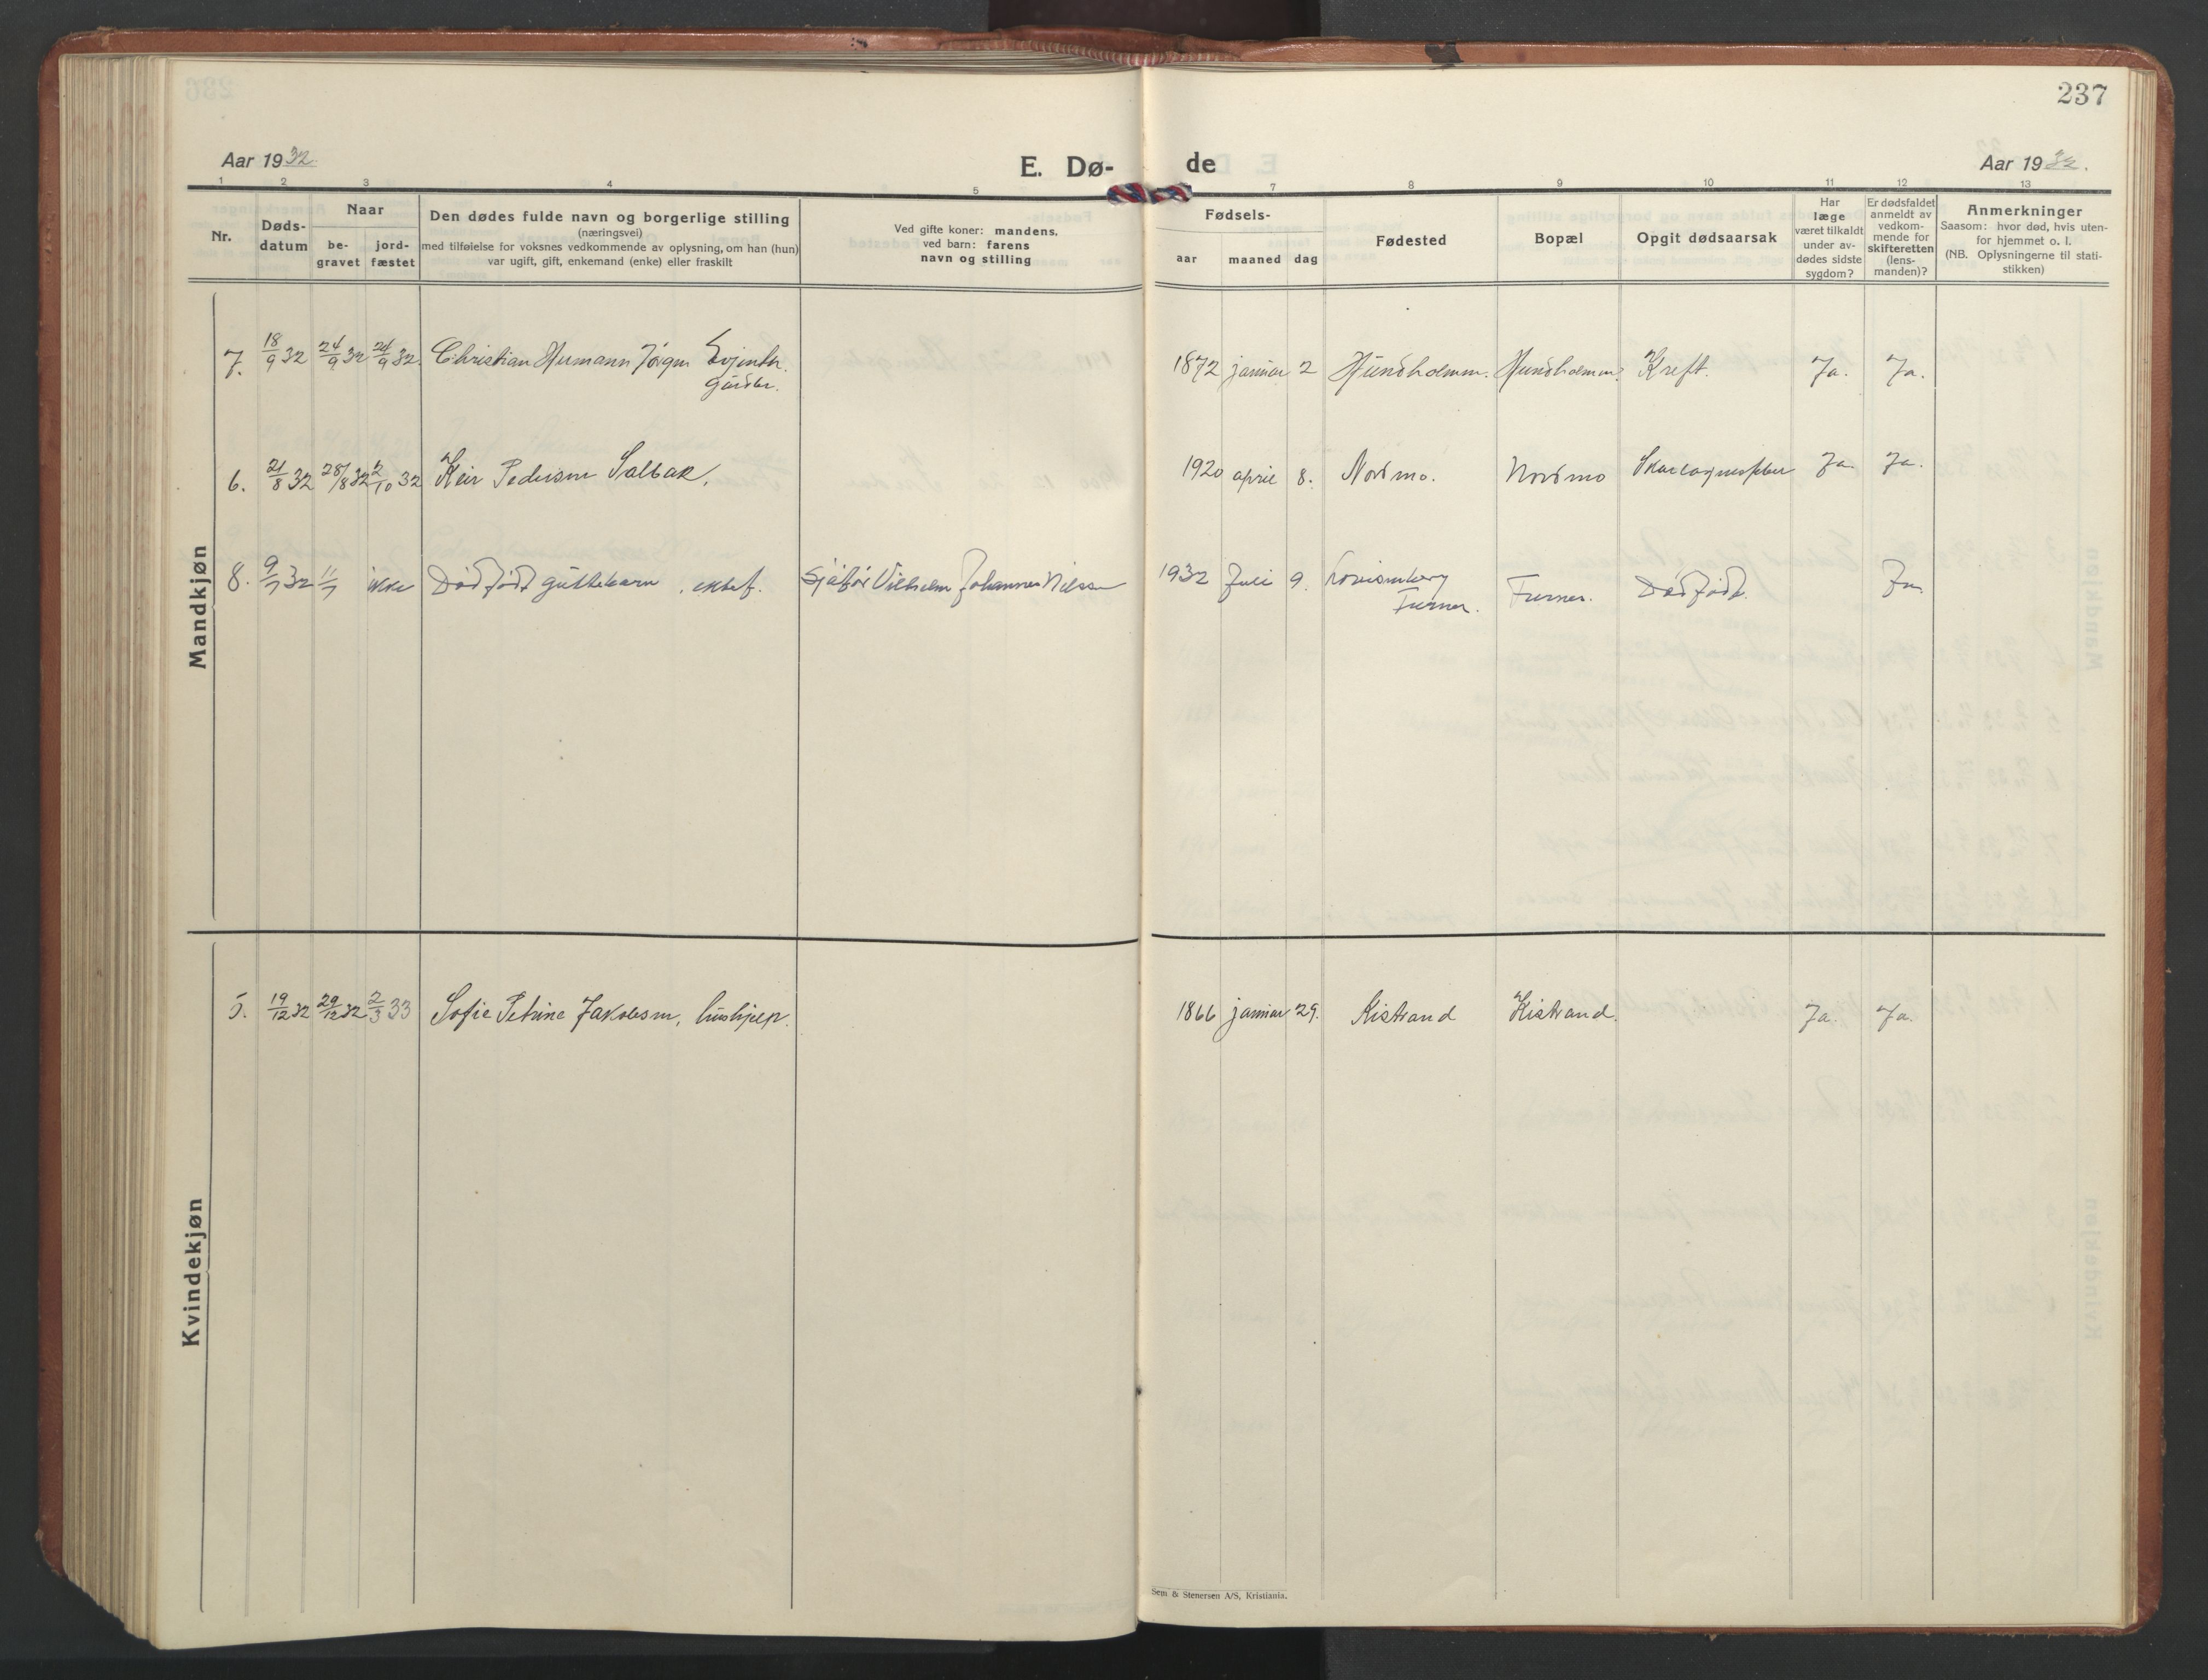 237
Aar 1932.
E. Dø-
de
Aar 1932.
1 2 3 4 5 7 8 9 10 11 12 13
Nr.
Døds-
datum
Naar
be-
gravet
jord-
fæstet
Den dødes fulde navn og borgerlige stilling
(næringsvei)
med tilføielse for voksnes vedkommende av oplysning, om han (hun)
var ugift, gift, enkemand (enke) eller fraskilt
Ved gifte koner: mandens,
ved barn: farens
navn og stilling
Fødsels-
aar maaned dag
Fødested
Bopæl
Opgit dødsaarsak
Har
læge
været tilkaldt
under av-
dødes sidste
sygdom?
Er dødsfaldet
anmeldt av
vedkom-
mende for
skifteretten
(lens-
manden)?
Anmerkninger
Saasom: hvor død, hvis uten-
for hjemmet o. l.
(NB. Oplysningerne til stati-
stikken)
Mandkjøn
7. 18/9 32 24/9 32 24/9 32. Christian Hermann Jørgen Evjenth. 1872 januar 2 Hundholmen. Hundholmen. Kreft. Ja. Ja.
gårdbr.
6. 21/8 32 28/8 32 2/10 32 Pedersen Salbak, 1920 april 8. Nordmo. Nordmo Skarlagensfeber Ja Ja.
8. 9/7 32 11/7 ikke Dødfødt guttebarn, ektef. Sjåfør Vilhelm Johannes Nilssen 1932 Juli 9. Furnes. Dødfødt. Ja
Furnes.
Kvindekjøn
5. 19/12 32 29/12 32 2/3 33 Sofie Petrine Jakobsen, hushjelp. 1866 januar 29. Kistrand Kistrand. Ja. Ja.
Sem & Stenersen A/S, Kristiania.